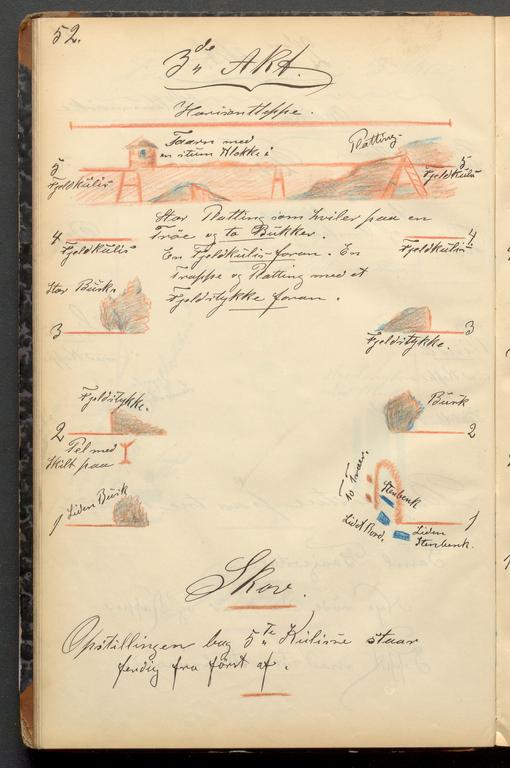 52.
3de Akt.
Horisonttæppe.
Taarn med
en stum Klokke i
Platting
5
Fjeldkulis
5
Fjeldkulis
Stor Platting som hviler paa en
Træe og to Bukker.
En Fjeldkulis foran. En
Trappe og Platting med et
Fjeldstykke foran.
4
Fjeldkulis
4
Fjeldkulis
Stor Busk.
3
3
Fjeldstykke.
Fjeldstykke.
2
Busk
2
Pel med
Skilt paa
1
Liden Busk
Træer.
Stenbenk
Lidet Bord.
Liden
Stenbenk.
1
Skov.
Opstillingen bag 5te Kulisse staar
ferdig fra först af.